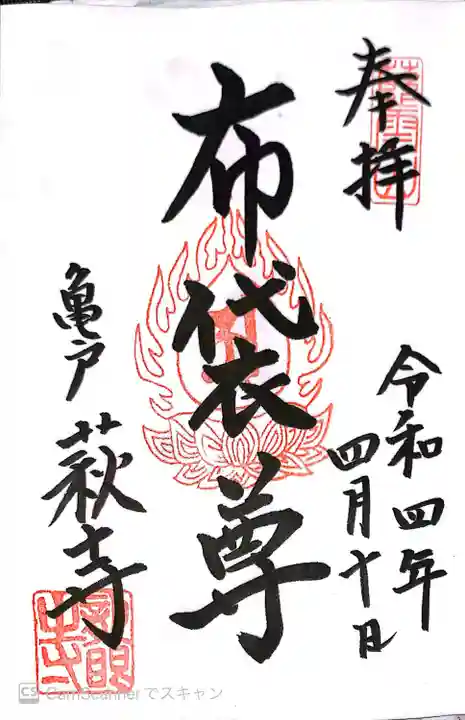 奉拝
令和四年
四月十日
布袋尊
亀戸
萩寺
CS CamScannerでスキャン